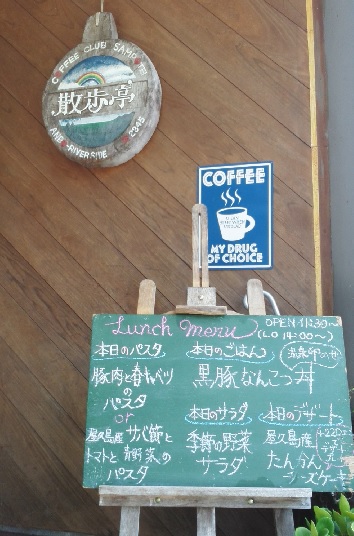 COFFEE CLUB SAMPOTEI
散歩亭
AND RIVERSIDE 2345
COFFEE
MY DRUG
OF CHOICE
Lunch Menu
OPEN 11:30〜
(LO 14:00〜)
本日のパスタ
豚肉と春キャベツ
の
パスタ
or
屋久島産 サバ節と
トマトと 野菜の
パスタ
本日のごはん
温泉卵のせ
黒豚なんこつ丼
本日のサラダ
季節の野菜
サラダ
本日のデザート
屋久島産
たんかん
チーズケーキ